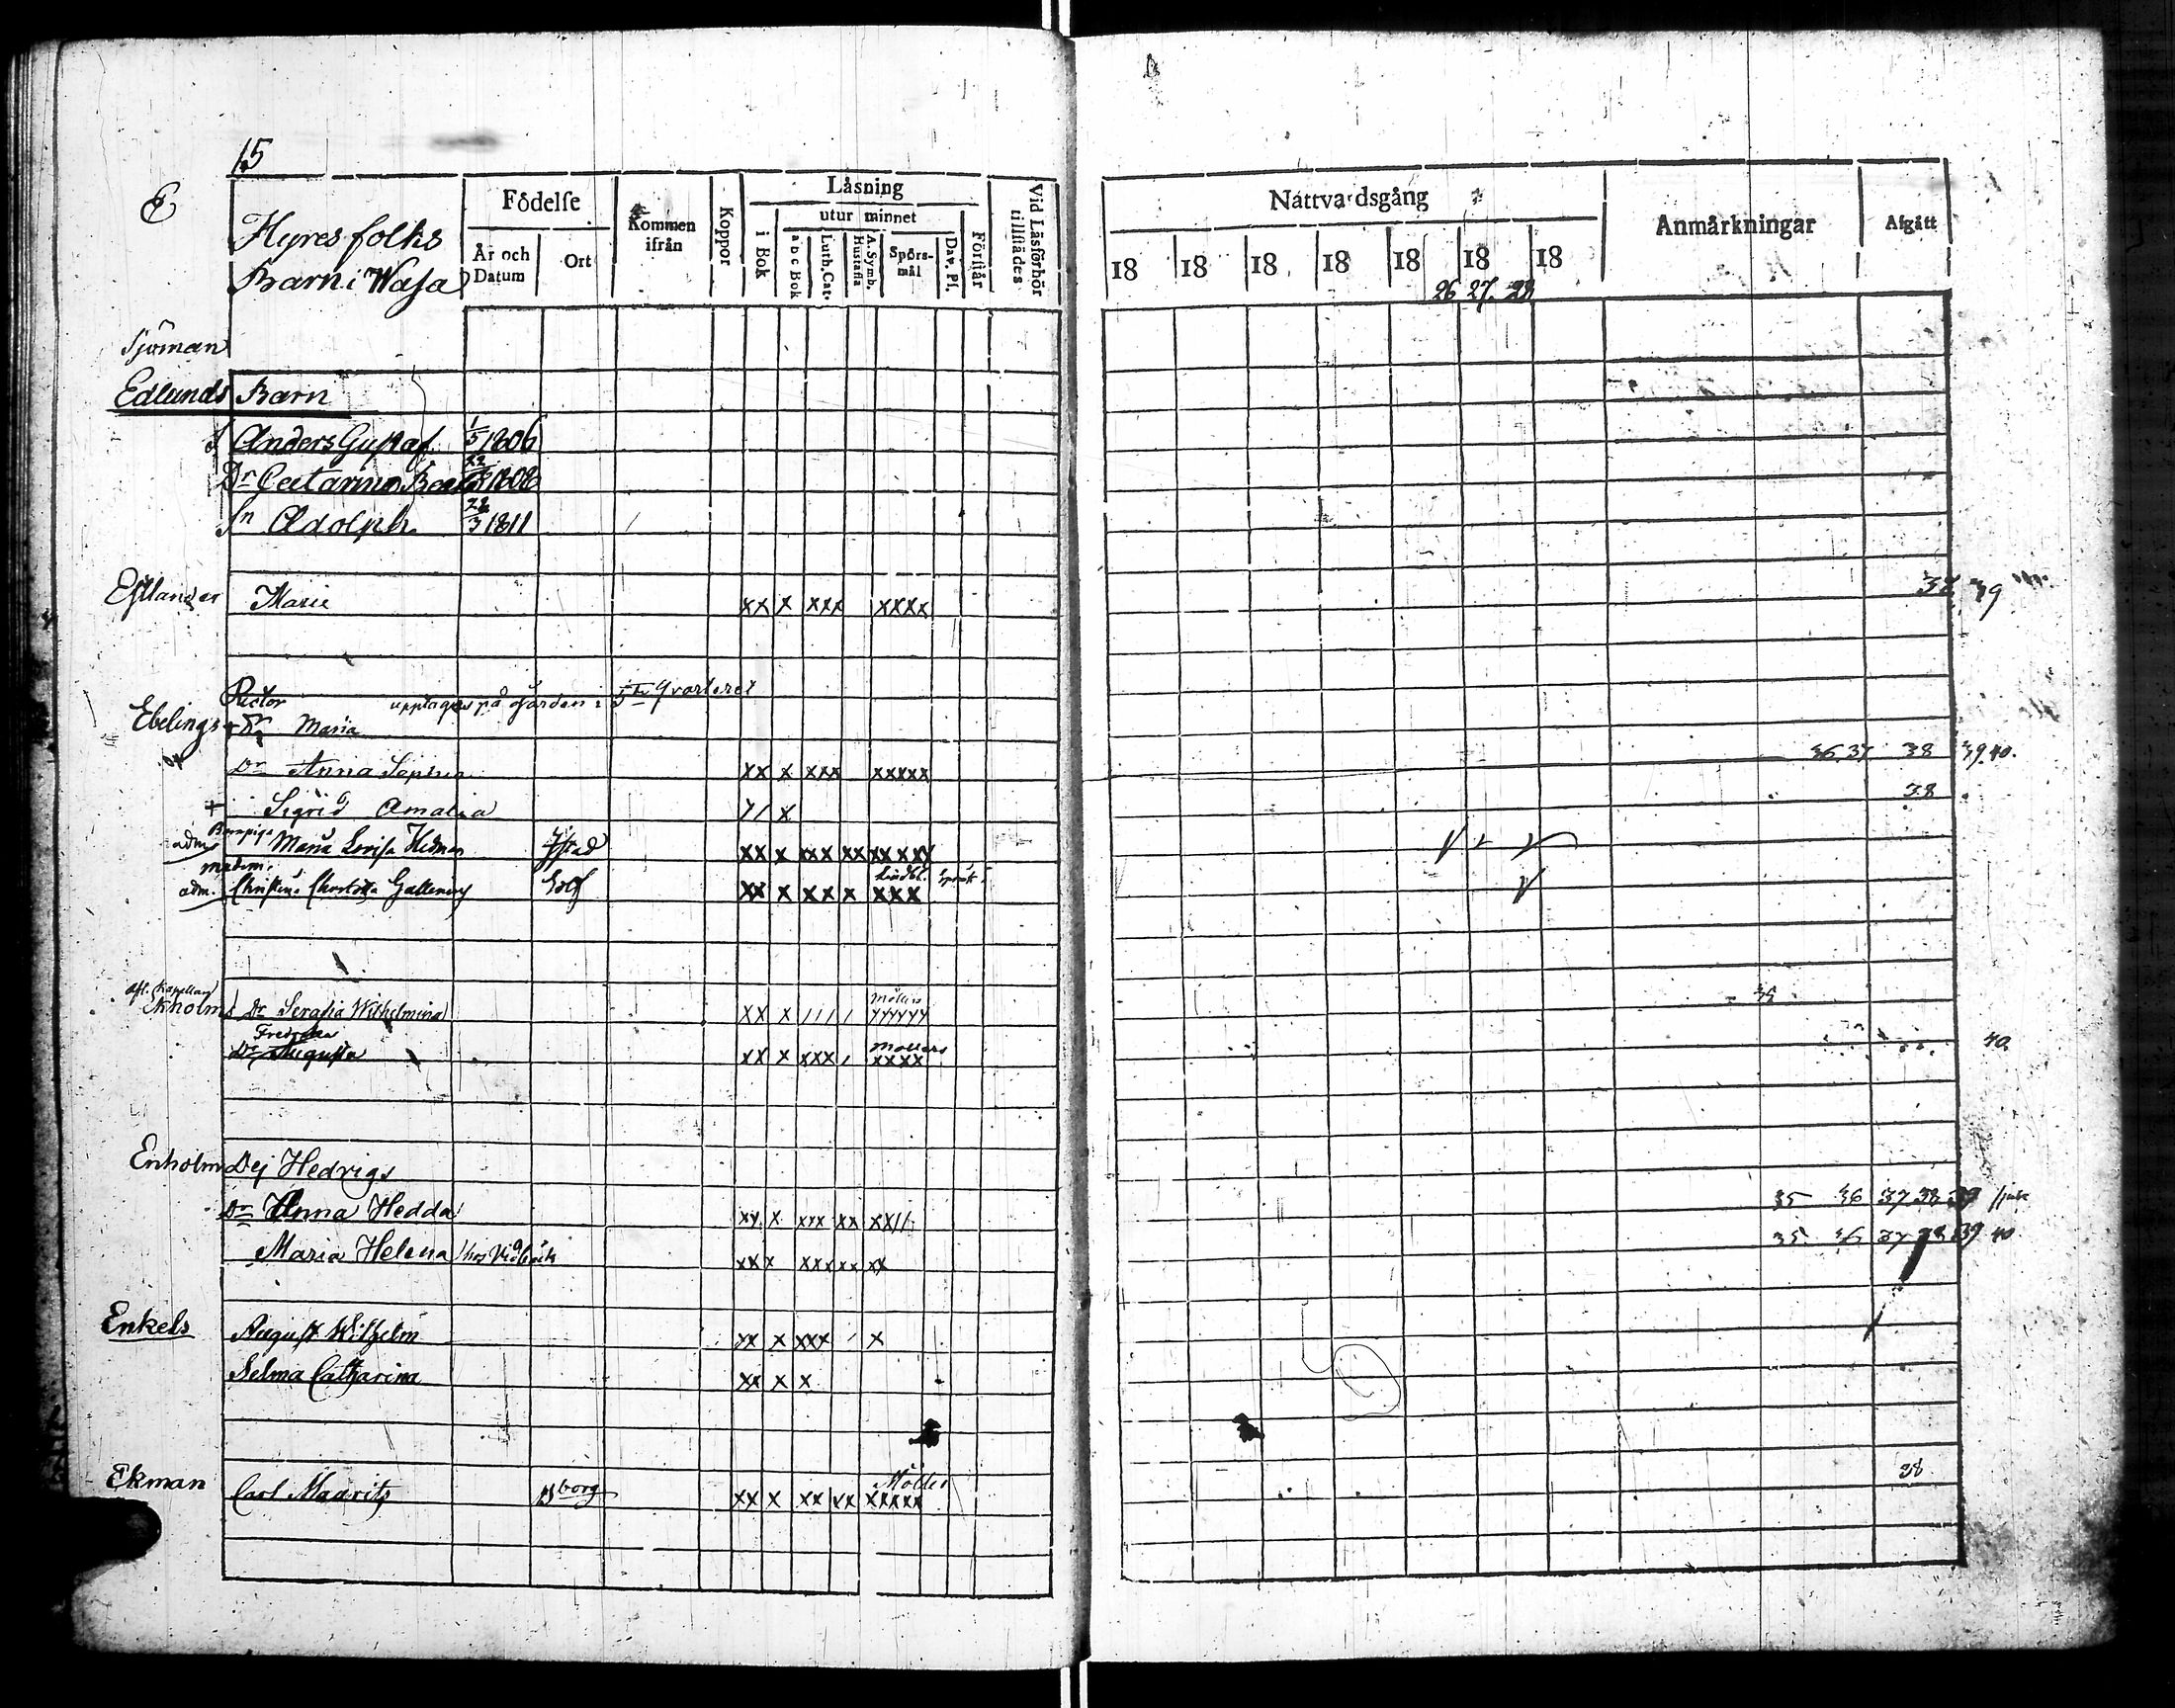 15
E
Hyresfolks
Barn i Wasa
Födelse
År och Datum
Ort
Kommen ifrån
Koppor
Läsning
i Bok
utur minnet
a b c Bok
Luth. Cat.
A. Symb. Hustafla
Spörsmål
Dav. Ps.
Förstår
Vid Läsförhör tillstädes
Nattvardsgång
18 18 18 18 18 18 18
26 27. 28
Anmärkningar
Afgått
Sjöman
Edlunds Barn
S Anders Gustaf 1/5 1806
Dr Catarina 1808
Sn Adolph 28/3 1811
Estlander Marie xx x xxx xxxx 38 39
Rector upptages på Gården i 5te Qvarteret
Ebelings Dr Maria
Dr Anna Sophia xx x xxx xxxxx 36 37 38 39 40.
+ Sigrid Amalia x/ x 38
Barnpiga
adm. Maria Lovisa Hedman xx x xxx xx xxxxx
adm. Christina Charlotta xx x xxx x xxx
Afl. Kapellan Möllers
Ekholms Dr Serafia Wilhelmina xx x //// yyyyyy 35
Fredrika Möllers
Dr Augusta xx x xxx / xxxx 40.
Enholm Dej Hedvigs
Dr Anna Hedda xx x xxx xx xx// 35 36 37 38 39 sjuk
Maria Helena hos xx x xxx xx xx 35 36 37 38 39 40
Enkels August Wilhelm xx x xxx / x
Selma Catharina xx x x
Möller
Ekman Carl Mauritz Bborg xx x xx xx xxxxx 38